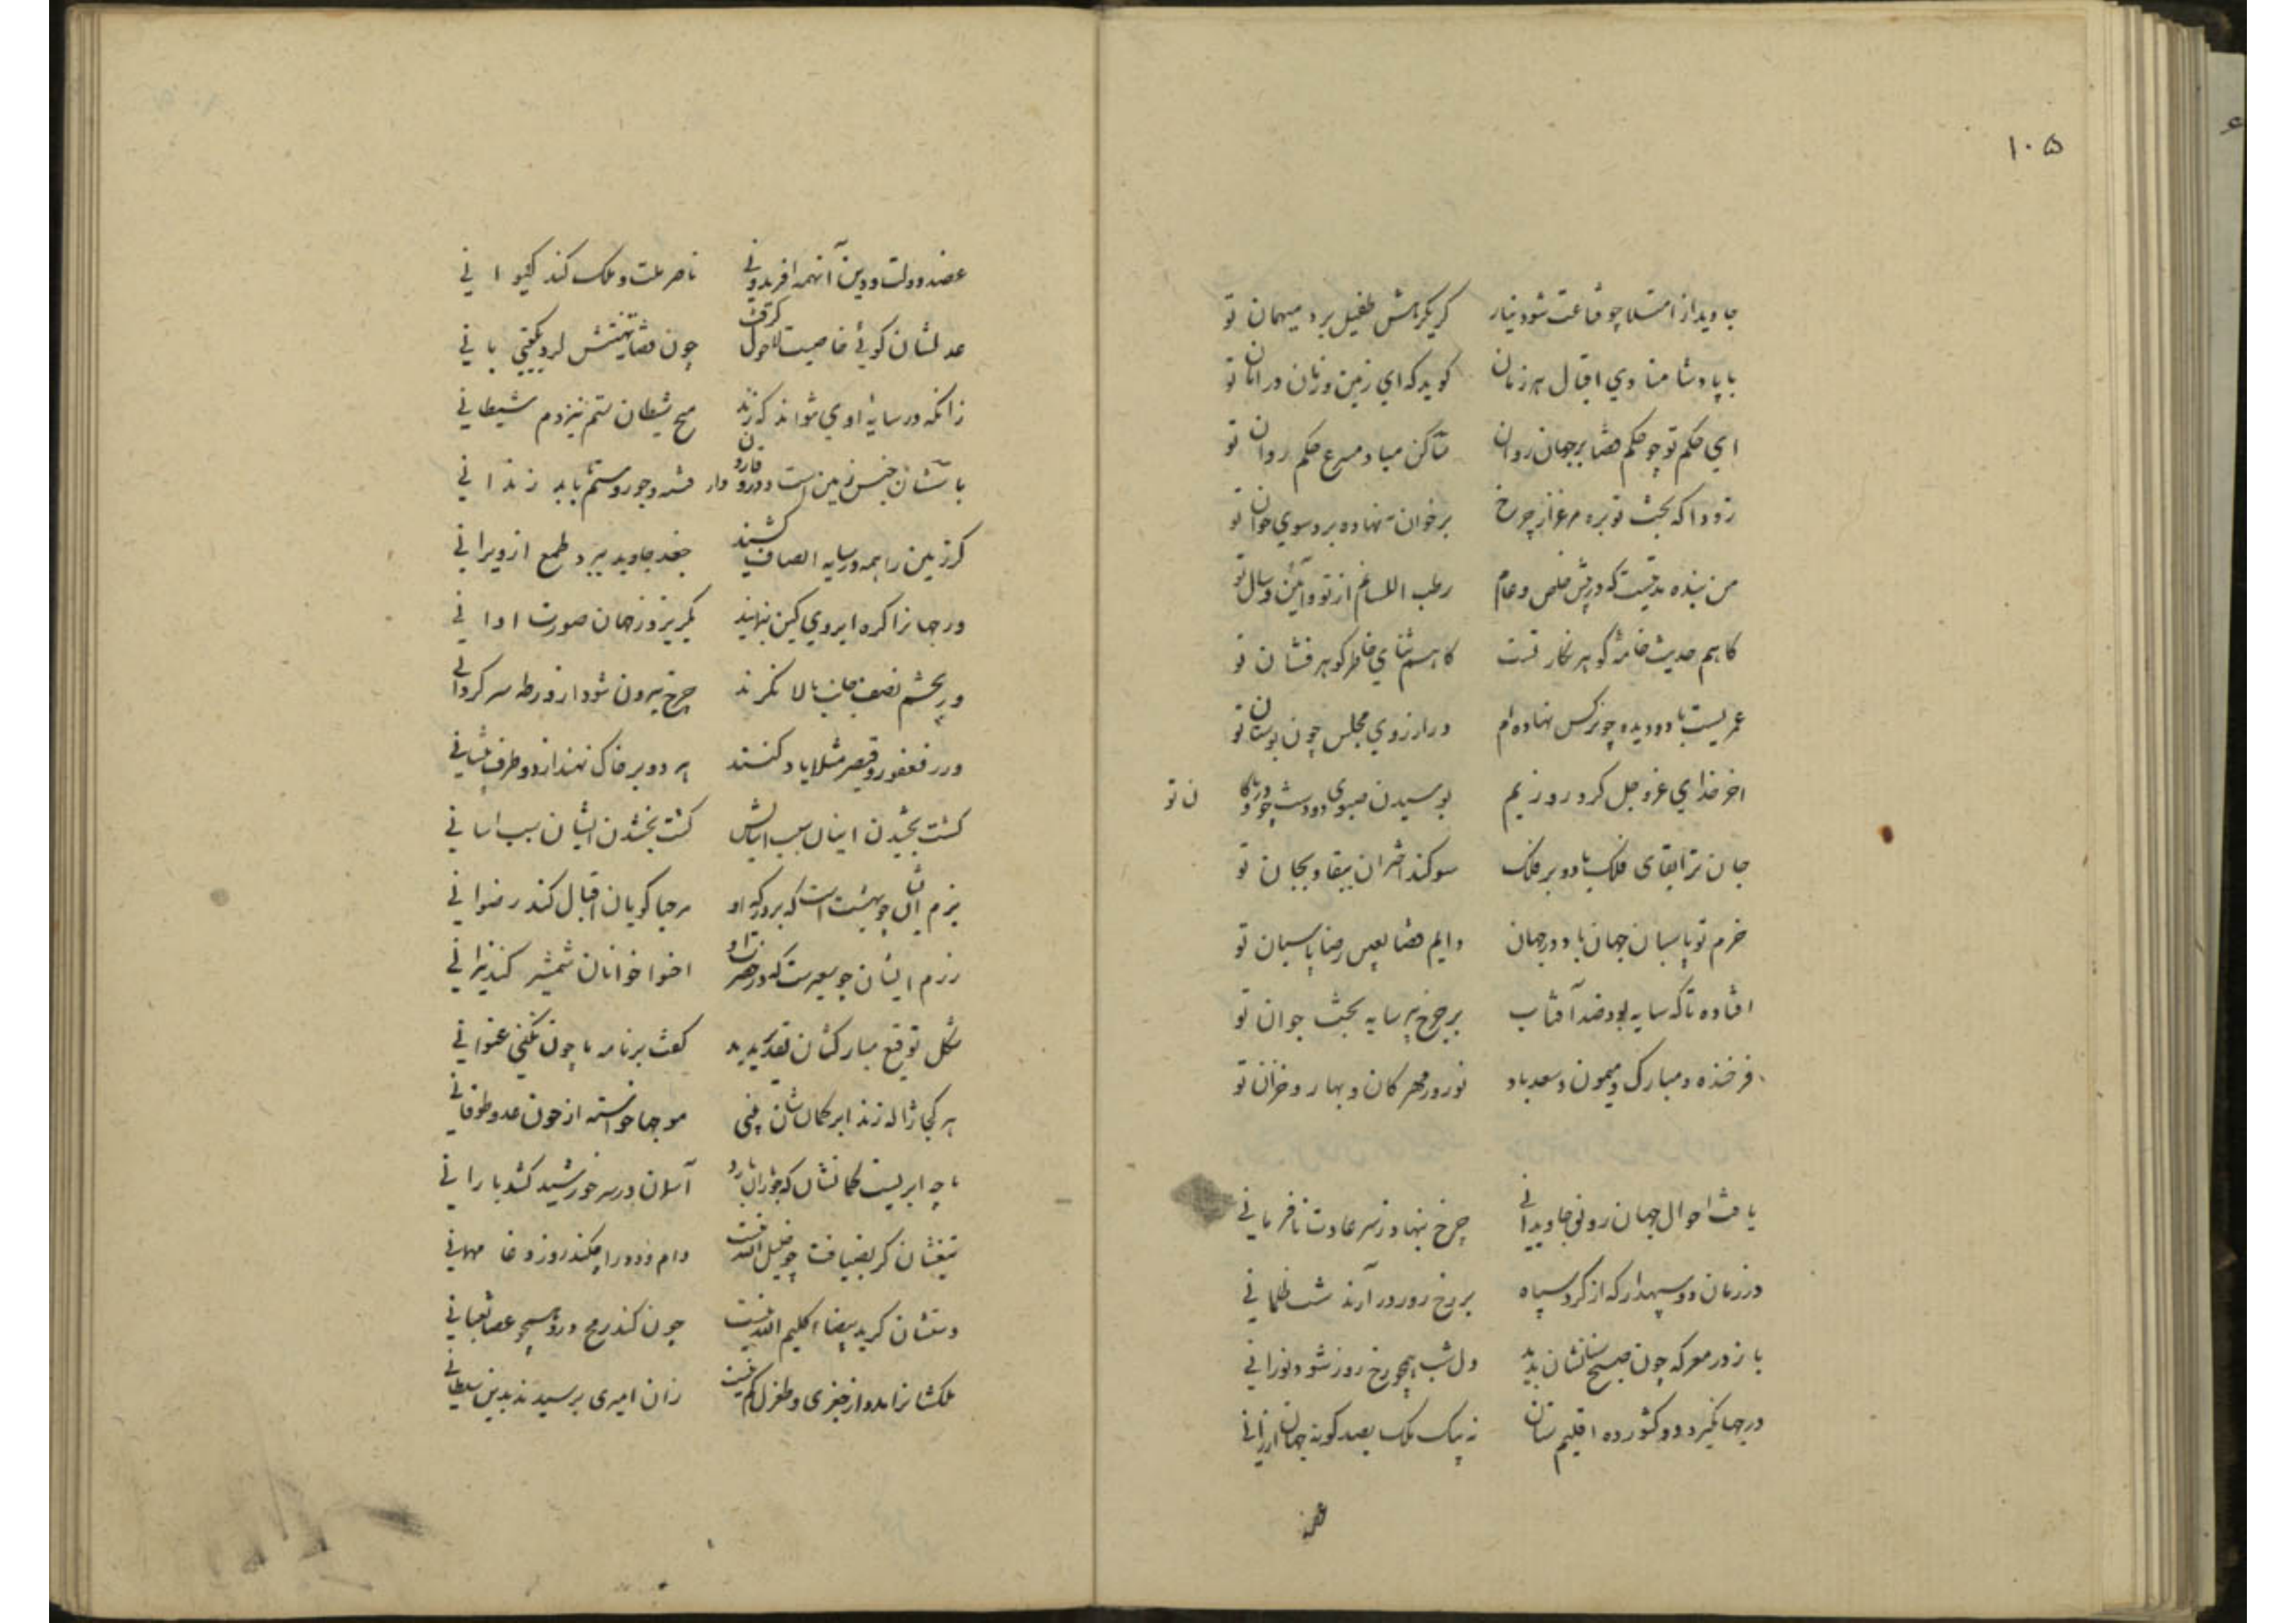 ۱۰۵
جاوید از امتلا چو قناعت شود نیاز کر یکرهش طفیل برد میهمان تو
با پادشا منادی اقبال هر زمان کوید که ای زمین و زمان در امان تو
ای حکم تو چو حکم قضا بر جهان روان ساکن مباد مسرع حکم روان تو
زودا که بخت تو بره مرغزار چرخ برخوان نهاده برد سوی خوان تو
من بنده مدتیست که در پیش خاص و عام رطب اللسانم از تو و
کاهم حدیث خامه کوهر نکار تست کاهم ثنای خاطر کوهرفشان تو
عمریست تا دو دیده چو نرکس نهاده ام در ارزوی مجلس چون بوستان تو
اخر خدای عز و جل کرد روزیم بوسیدن
ن تو
جان ترا بقای فلک باد و بر فلک سوکند اختران ببقا و بجان تو
حزم تو پاسبان جهان باد و در جهان دایم قضا بعین رضا پاسبان تو
افتاده تا که سایه بود ضد آفتاب بر چرخ پیر سایه بخت جوان تو
فرخنده و مبارک و میمون و سعد باد نوروز و مهرکان و بهار و خزان تو
یافت احوال جهان رونق جاویدانی چرخ بنهاد ز سر عادت نافرمانی
در زمان دو سپهدار که از کرد سپاه بر رخ روز در آرند شب ظلمانی
باز در معرکه چون صبح سنانشان بدمد دل شب همچو رخ روز شود نورانی
در جهانکیر و دو کشور ده اقلیم ستان نه بیک ملک بصد کونه جهان ارزانی
عضد
عضد دولت و دین آنهمه افریدونی ناصر ملت و ملک کند کیوانی
عدلشان کوئی خاصیت لاحول کرفت چون قضا
زانکه در سایه اوی نتواند که زند هیچ شیطان ستم نیز دم شیطانی
باسشان جنس زمین است و درو قارون وار فتنه و جور و ستم باید زندانی
کر زمین را همه در سایه انصاف کشند جغد جاوید ببرد طمع از ویرانی
ور جهانرا کره ابروی کین بنمایند بکریزد ز جهان صورت ا
ور بچشم نصفه جانب بالا نکرند چرخ بیرون شود از ورطه سرکردانی
ورر فغفور و قیصر مثلا یاد کنند هر دو بر خاک نهند از دو طرف پیشانی
کشت بخشیدن اینان سبب آسایش کشت بخشودن ایشان سبب اسانی
بزم ایشان چو بهشت است که بر درکه او مرحبا کویان اقبال کند رضوانی
رزم ایشان چو سعیرست که در حضرت او اخوا خوانان شمشیر کند نیرانی
شکل توقیع مبارکشان تقدیر بدید کفت بر نامه ما چون نکنی عنوانی
هر کجا ژاله زند ابر کمانشان بینی موجها خواسته از خون عدو طوفانی
تا چه ابریست کمانشان که چو ژاله بارد آسمان در سر خورشید کشد بارانی
تیغشان کر بضیافت چو خلیل الله نیست دام و دد را چکند روز وغا مهمانی
دستشان کر ید بیضاء کلیم الله نیست چون کند رمح درو همچو عصا ثعبانی
ملکشانرا مدد از چغری و طغرل کم نیست زان امیری برسیدند بدین سلطانی